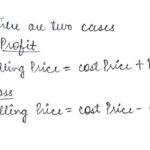 are two cases
Profit
lling Price = cost Price +
lling Price = cost Price -